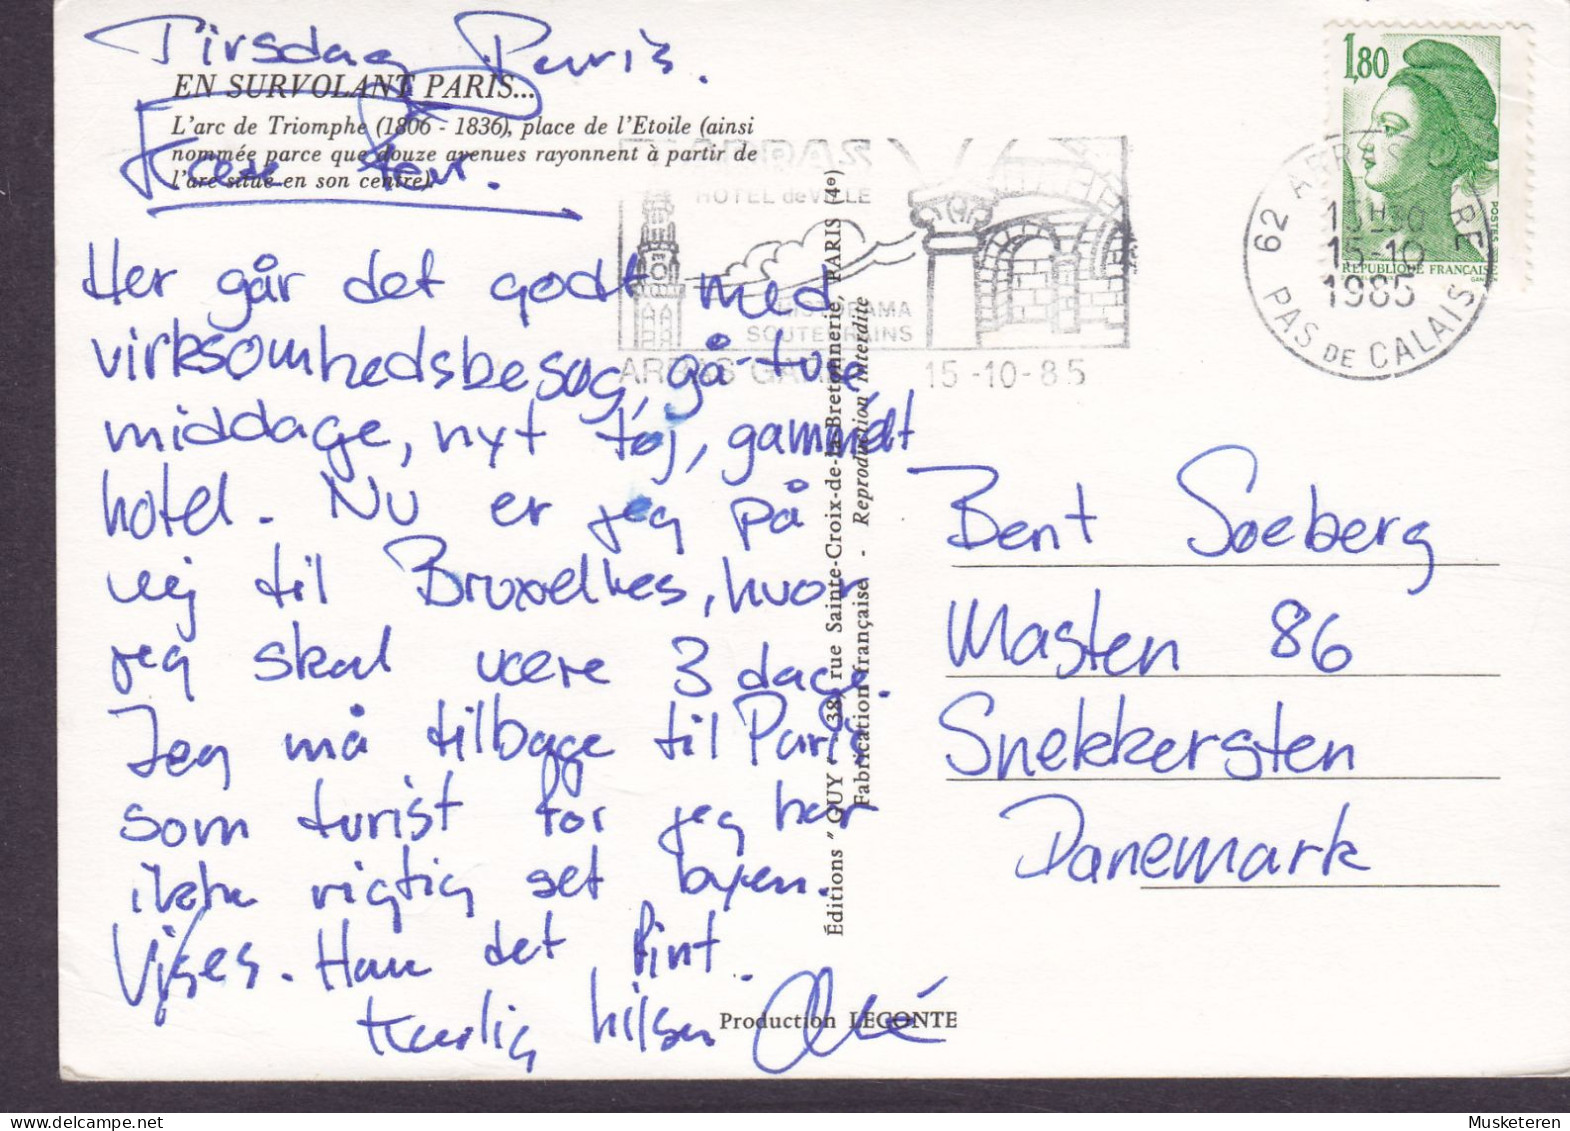 Tirsdag Paris.
EN SURVOLANT PARIS...
L'arc de Triomphe (1806 - 1836), place de l'Etoile (ainsi
nommée parce que douze avenues rayonnent à partir de
l'arc situé en son centre).
Her går det godt med
virksomhedsbesøg, gå-ture,
middage, nyt tøj, gammelt
hotel. Nu er jeg på
vej til Bruxelles, hvor
jeg skal være 3 dage.
Jeg må tilbage til Paris
som turist for jeg har
ikke rigtig set byen.
Vises. Hav det fint.
Kærlig hilsen
Production LECONTE
Éditions "GUY" - 38, rue Sainte-Croix-de-la-Bretonnerie, PARIS (4e)
Fabrication française - Reproduction interdite
ARRAS
HOTEL de VILLE
HISTORAMA
SOUTERRAINS
ARRAS GARE 15-10-85
1,80
POSTES
REPUBLIQUE FRANÇAISE
62 ARRAS GARE
15H30
15-10
1985
PAS DE CALAIS
Bent Søeberg
Masten 86
Snekkersten
Danemark
Musketeren